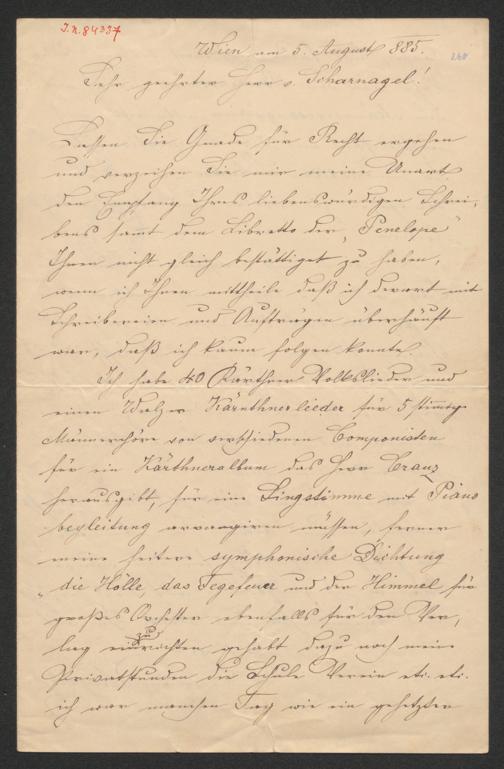 I.N. 84337
Wien am 5. August 885.
Sehr geehrter Herr v. Scharnagel!
Lassen Sie Gnade für Recht ergehen
und verzeihen Sie mir meine Unart
den Empfang Ihres liebenswürdigen Schrei-
bens sammt dem Libretto der „Penelope"
Ihnen nicht gleich bestättiget zu haben,
wenn ich Ihnen mittheile daß ich derart mit
Schreibereien und Aufträgen überhäuft
war, daß ich kaum folgen konnte.
Ich habe 40 Kärthner Volkslieder und
einen Walzer Kärnthnerlieder für 5 stimmige
Männerchöre von verschiedenen Componisten
für ein Kärthneralbum das Herr Cranz
herausgibt, für eine Singstimme mit Piano
begleitung arrangiren müssen, ferner
meine heitere symphonische Dichtung
„die Hölle, das Fegefeuer und der Himmel für
großes Orchester ebenfalls für den Ver-
lag einzurichten gehabt dazu noch meine
Privatstunden die Schule Verein etc. etc.
ich war manchen Tag wie ein gehetzter